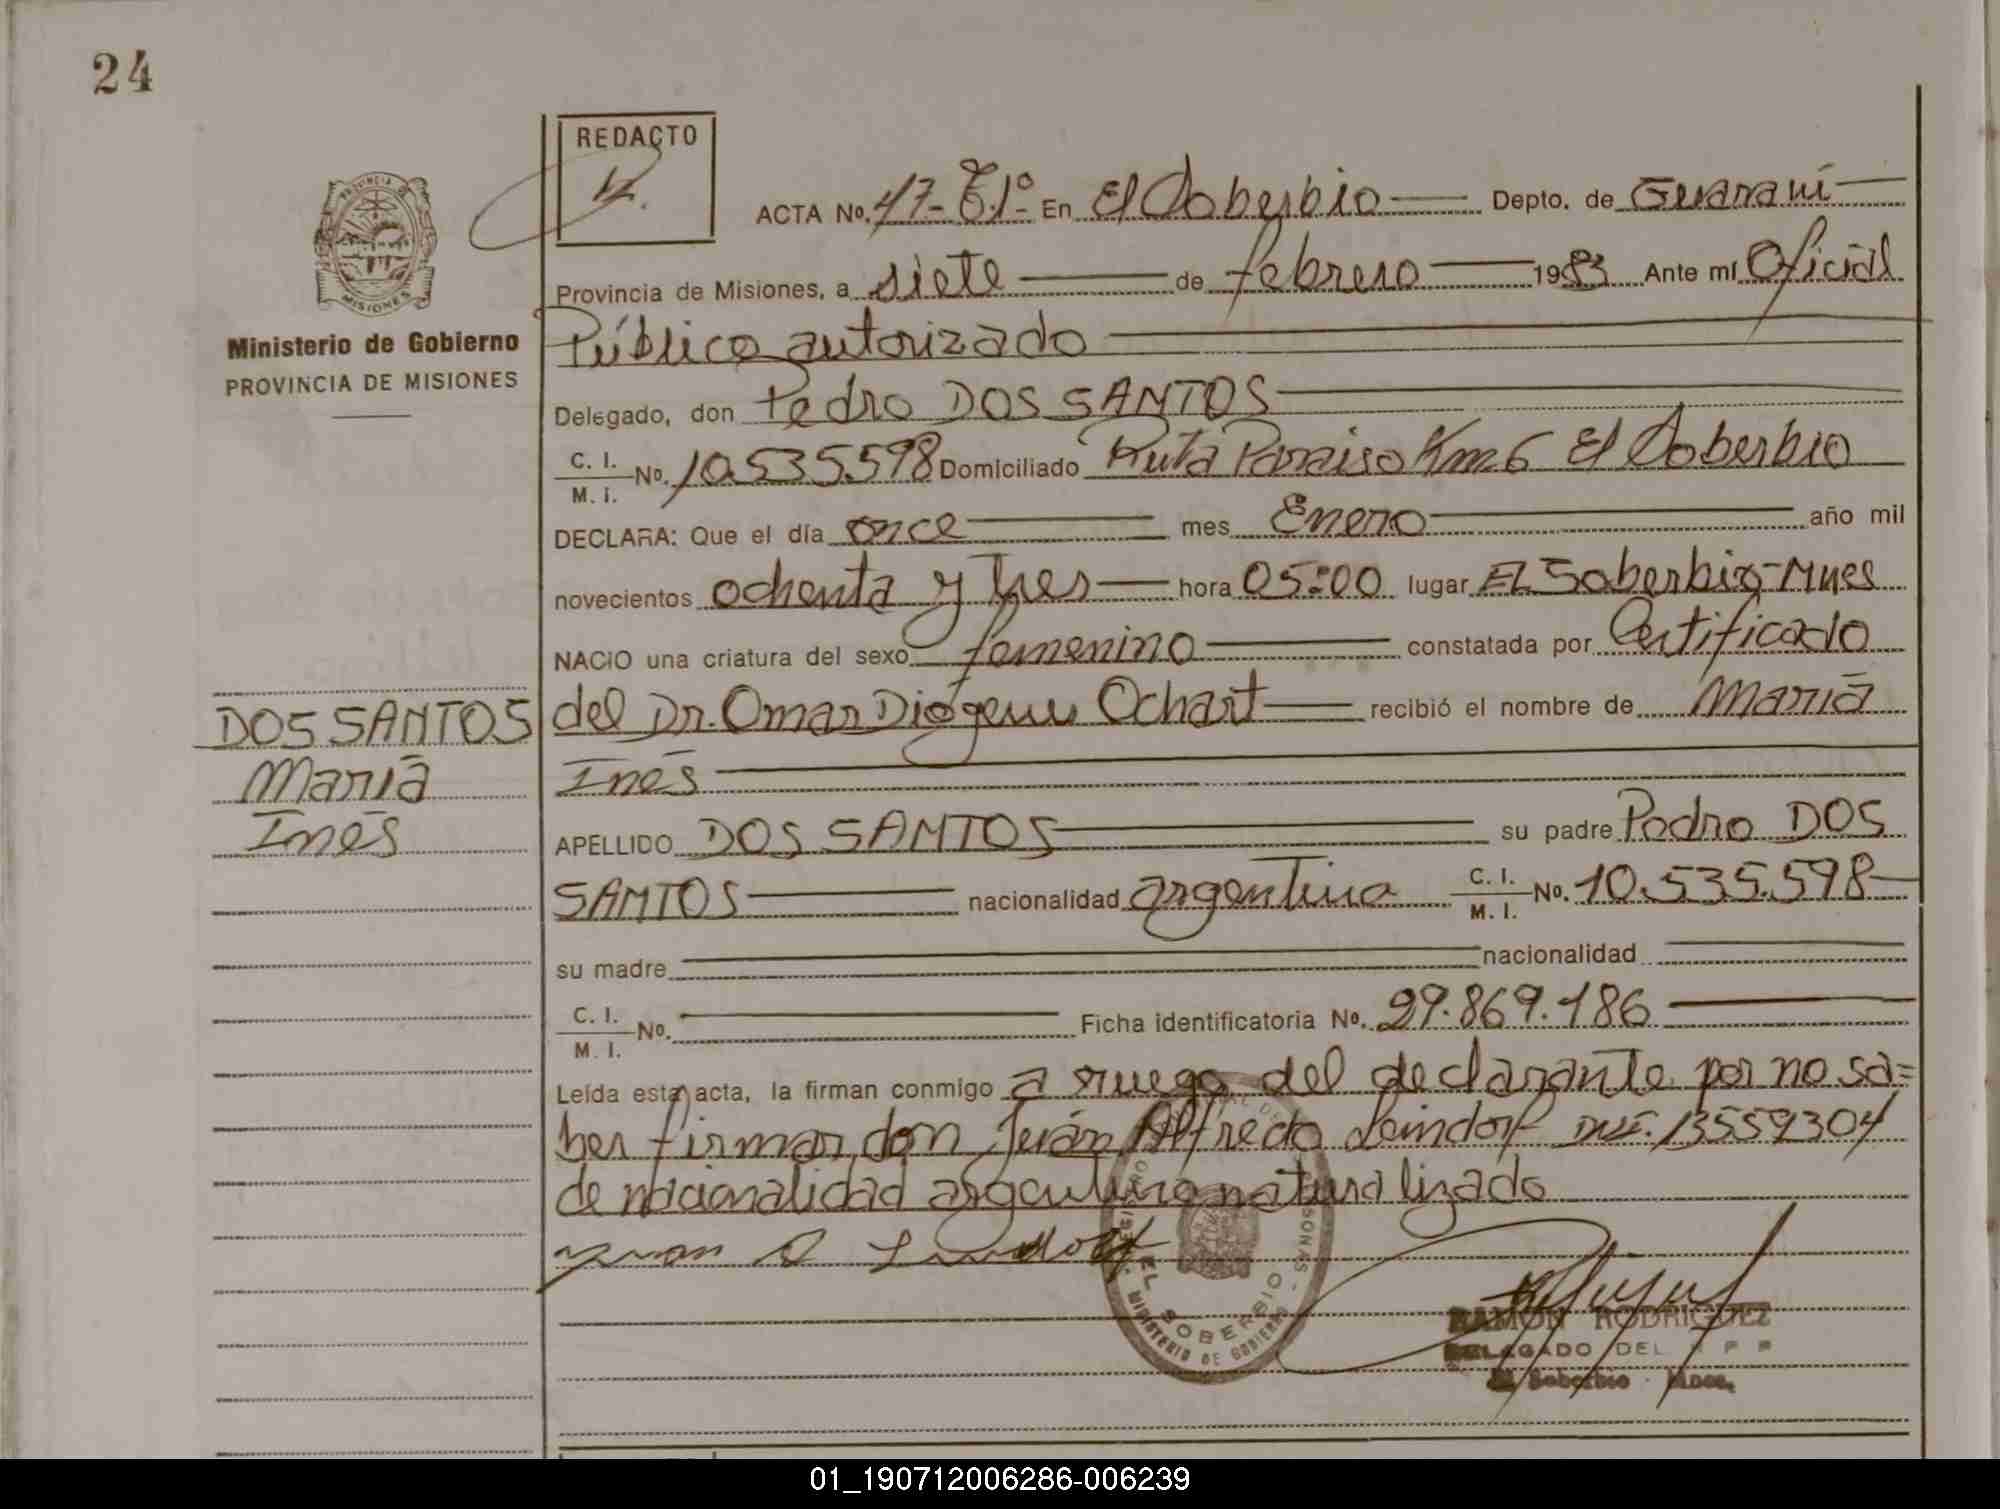 24
REDACTO
PROVINCIA DE
MISIONES
Ministerio de Gobierno
PROVINCIA DE MISIONES
ACTA No. 47-T.1º- En El Soberbio Depto. de Guaraní
Provincia de Misiones, a siete de febrero 1983 Ante mí Oficial
Público autorizado
Delegado, don Pedro DOS SANTOS
C. I.
M. I. No. 10.535.598 Domiciliado Ruta Paraiso Km 6 El Soberbio
DECLARA: Que el día once mes Enero año mil
novecientos ochenta y tres hora 05:00 lugar EL Soberbio-Mnes
NACIO una criatura del sexo femenino constatada por Certificado
del Dr. Omar Diógenes Ochart recibió el nombre de María
Inés
DOS SANTOS
María
Inés
APELLIDO DOS SANTOS su padre Pedro DOS
SANTOS nacionalidad argentina C. I.
M. I. No. 10.535.598
su madre nacionalidad
C. I.
M. I. No. Ficha identificatoria No. 29.869.186
Leída esta acta, la firman conmigo a ruego del declarante por no sa=
ber firmar don Juán Alfredo Leindorf DNI. 13559304
de nacionalidad argentino naturalizado
EL SOBERBIO
MINISTERIO DE GOBIERNO
RAMON RODRIGUEZ
DELEGADO DEL
El Soberbio - Mnes.
01_190712006286-006239